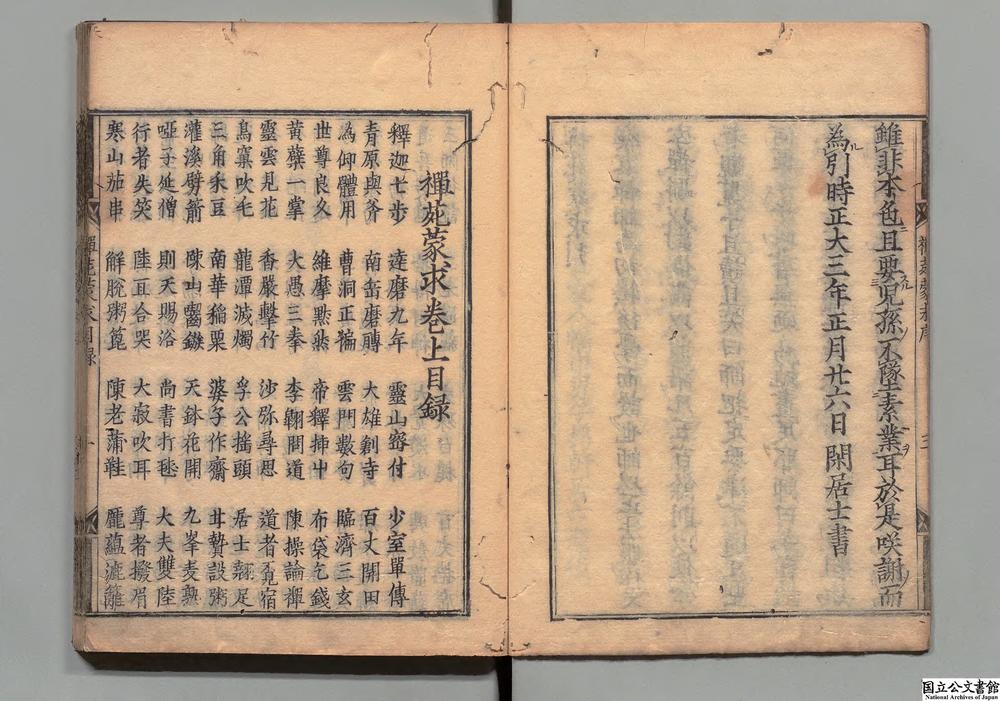 雖非本色且要兒孫不墜素業耳於是咲謝而
為引時正大三年正月廿六日閑居士書
禪苑蒙求卷上目録
釋迦七步 達磨九年 靈山密付 少室單傳
青原與斧 南岳磨磚 大雄創寺 百丈開田
為仰體用 曹洞正褊 雲門數句 臨濟三玄
世尊良久 維摩默然 帝釋挿艸 布袋乞錢
黄蘗一掌 大愚三拳 李翺問道 陳操論禪
靈雲見花 香嚴擊竹 沙弥尋思 道者覓宿
鳥窠吹毛 龍潭滅燭 孚公揺頭 居士翹足
三角乘豆 南華稲粟 婆子作齋 甘贄設粥
灌溪劈箭 陳山齧鏃 天鉢花開 九峯麦熟
啞子延僧 則天賜浴 尚書打毬 大夫雙陸
行者失笑 陸亘合哭 大寂吹耳 尊者撥眉
寒山茄串 解脱粥篦 陳老蒲鞋 龐蘊漉籬
禪苑蒙求序
三
禪苑蒙求目録
一
国立公文書館
National Archives of Japan